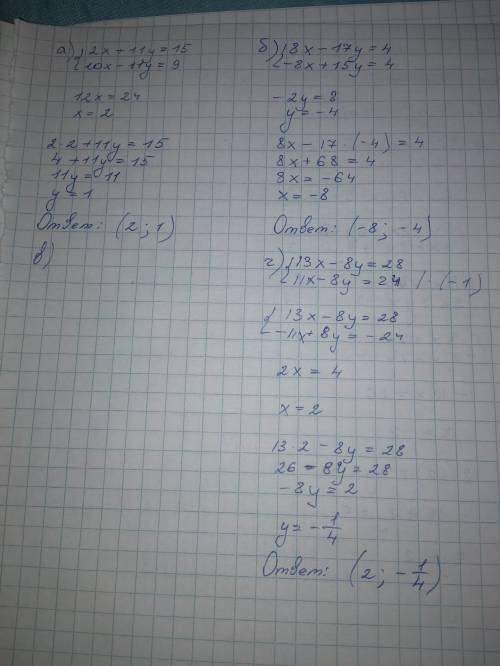 а) { 2x + 11y = 15
10x - 11y = 9
12x = 24
x = 2
2·2 + 11y = 15
4 + 11y = 15
11y = 11
y = 1
Ответ: (2; 1)
в)
б) { 8x - 17y = 4
-8x + 15y = 4
-2y = 8
y = -4
8x - 17·(-4) = 4
8x + 68 = 4
8x = -64
x = -8
Ответ: (-8; -4)
г) { 13x - 8y = 28
11x - 8y = 24 /·(-1)
{ 13x - 8y = 28
-11x + 8y = -24
2x = 4
x = 2
13·2 - 8y = 28
26 - 8y = 28
-8y = 2
y = -1/4
Ответ: (2; -1/4)